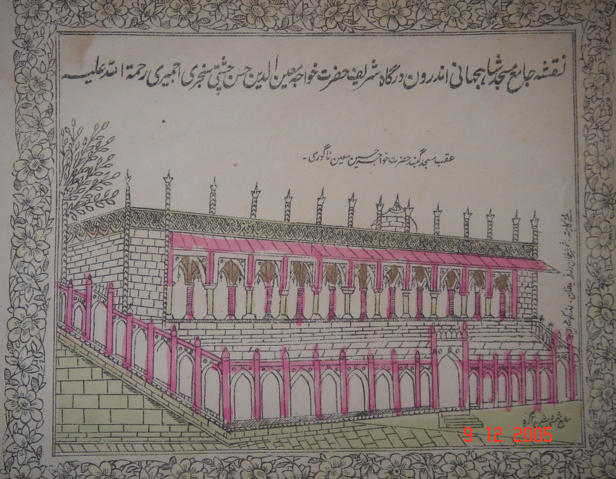 نقشہ جامع مسجد شاہجہانی اندرون درگاہ شریف حضرت خواجہ معین الدین حسن چشتی سنجری اجمیری رحمۃ اللہ علیہ
عقب مسجد گنبد حضرت خواجہ حسین معین ناگوری ۔
9 12 2005